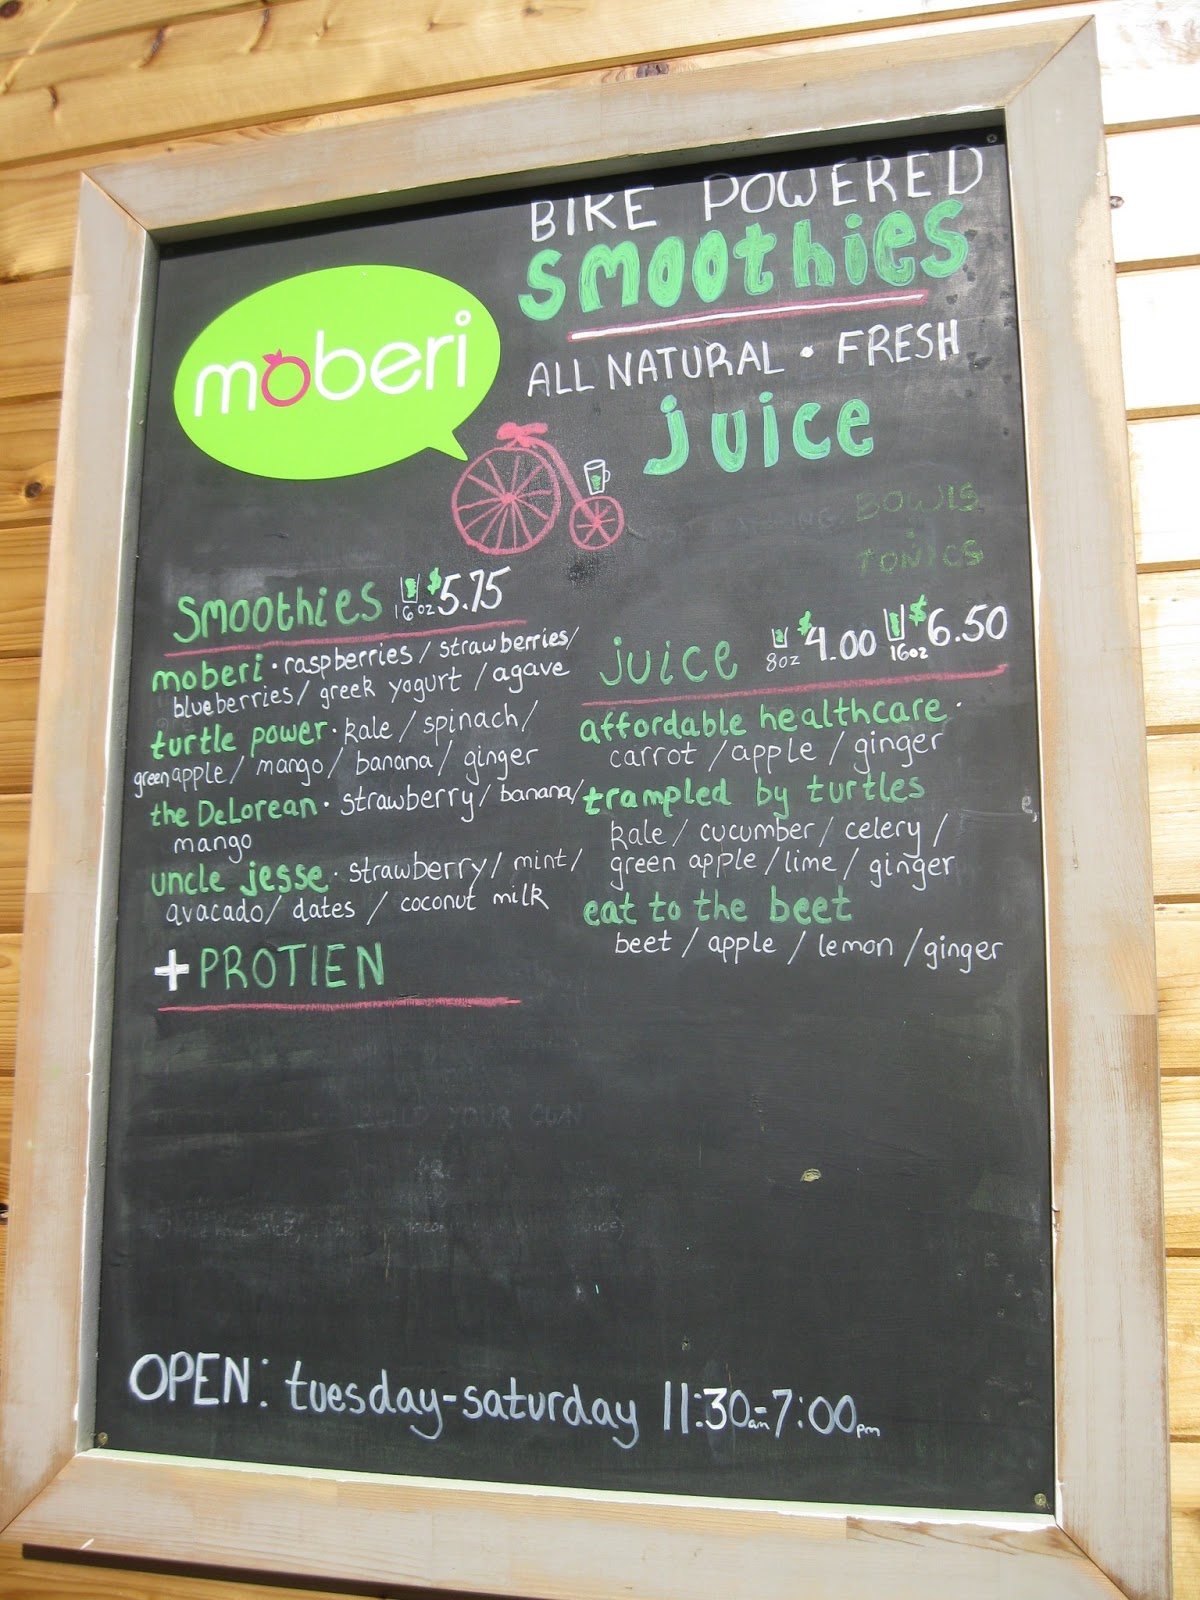 BIKE POWERED
smoothies
moberi
ALL NATURAL • FRESH
juice
BOWLS
TONICS
Smoothies 16oz $5.75
moberi • raspberries / strawberries/
blueberries / greek yogurt / agave
turtle power • kale / spinach /
green apple / mango / banana / ginger
the DeLorean • strawberry / banana/
mango
uncle jesse • strawberry / mint /
avacado / dates / coconut milk
+ PROTIEN
juice 8oz $4.00 16oz $6.50
affordable healthcare •
carrot / apple / ginger
trampled by turtles
kale / cucumber / celery /
green apple / lime / ginger
eat to the beet
beet / apple / lemon / ginger
BUILD YOUR OWN
OPEN: tuesday-saturday 11:30am-7:00pm